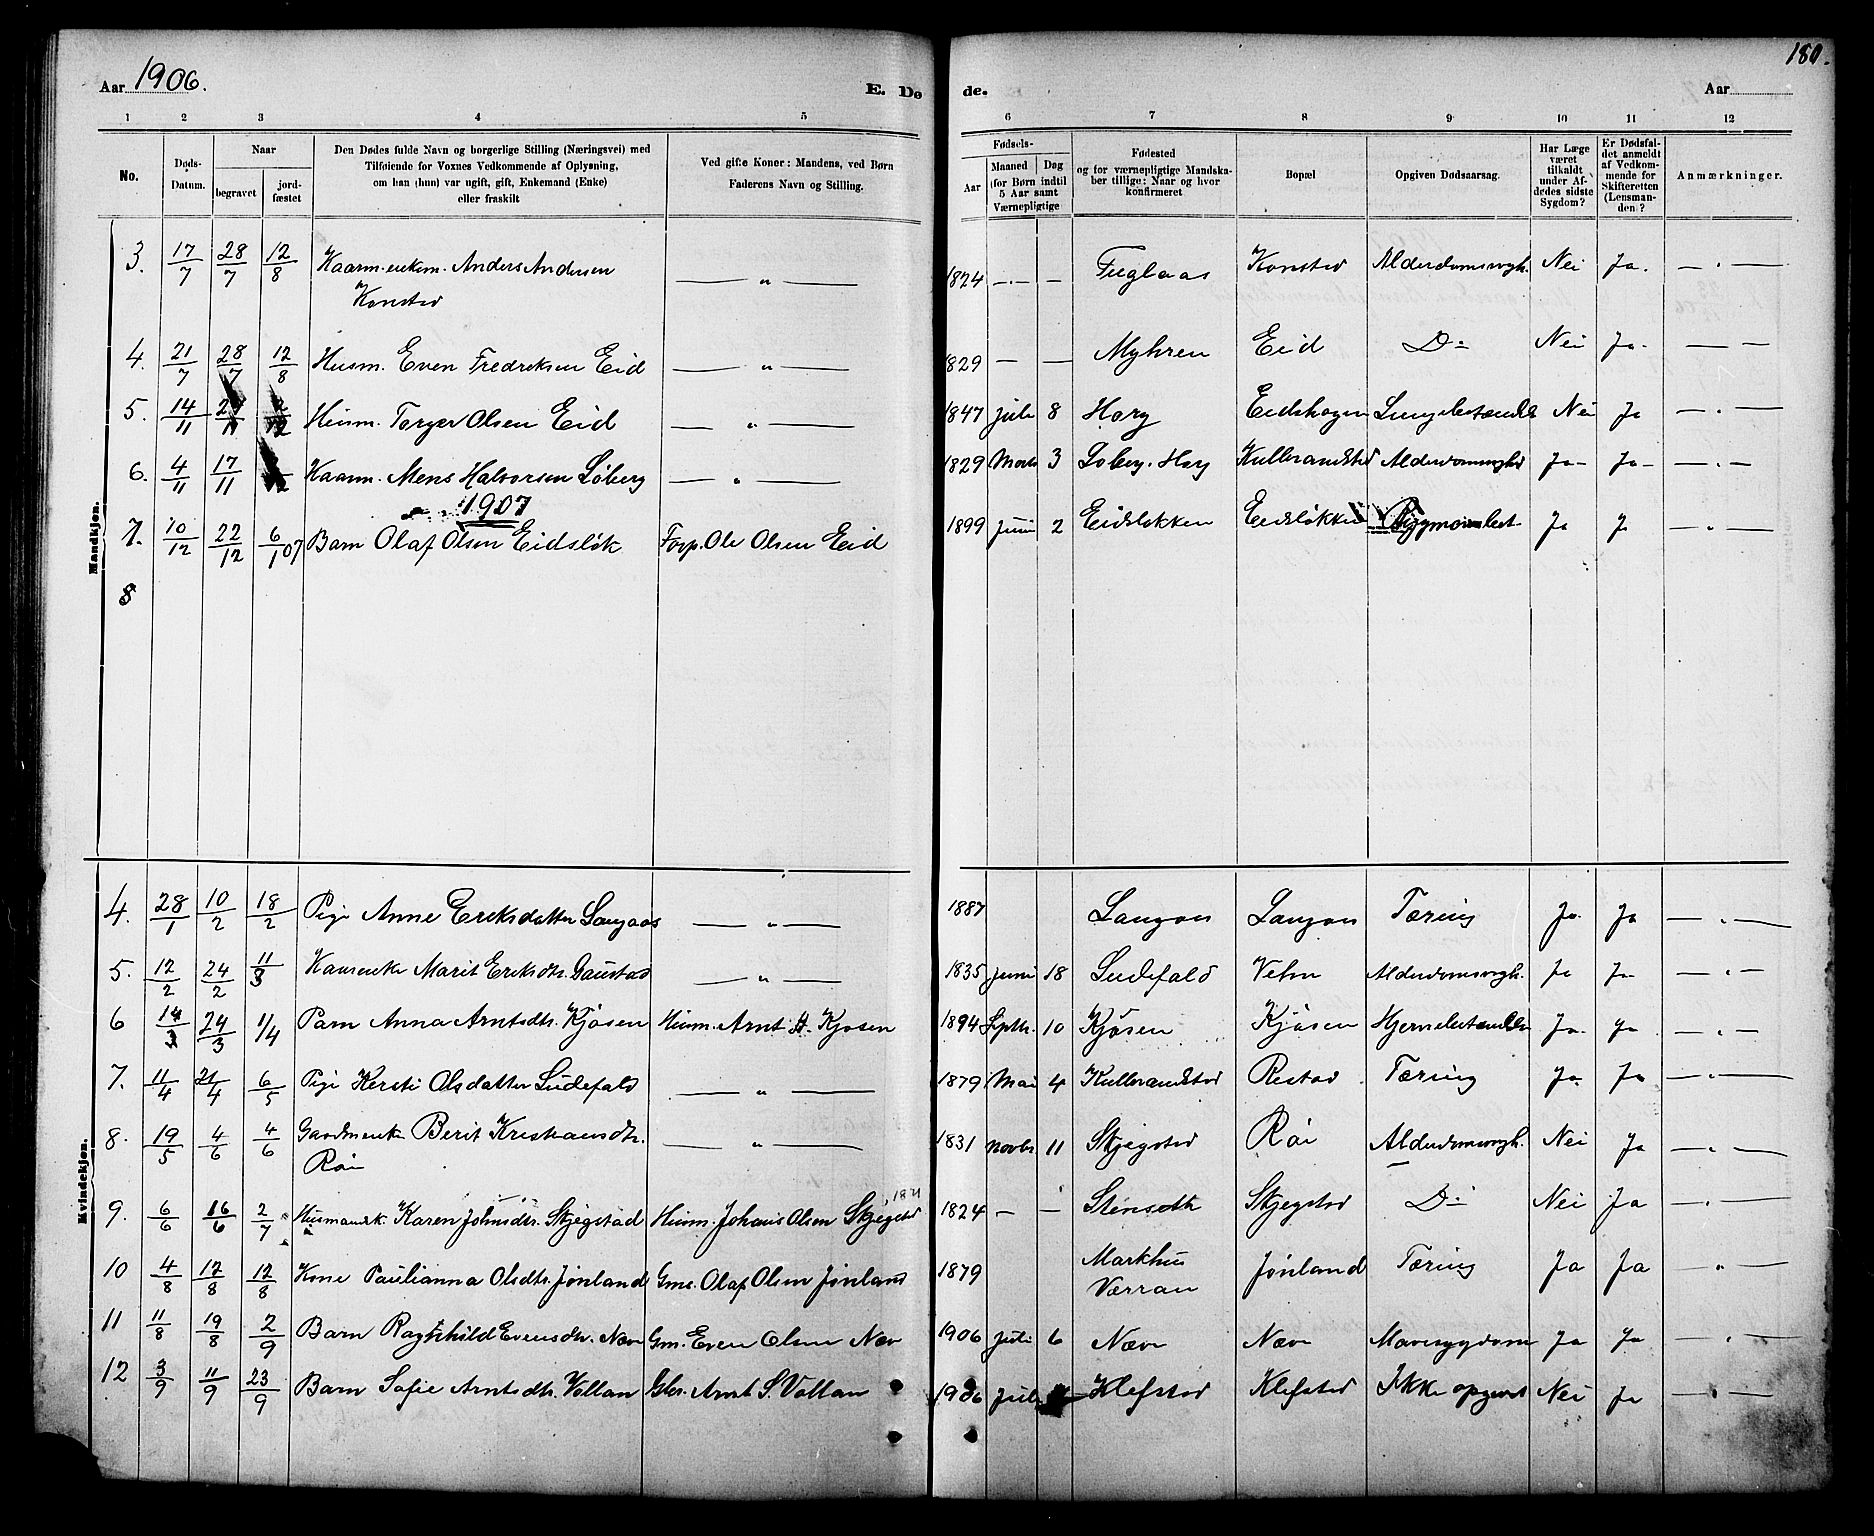 180.
Aar 1906.
E. Dø
de.
Aar
1 2 3 4 5 6 7 8 9 10 11 12
No.
Døds-Datum.
Naar
begravet
jordfæstet
Den Dødes fulde Navn og borgerlige Stilling (Næringsvei) med
Tilføiende for Voxnes Vedkommende af Oplysning,
om han (hun) var ugift, gift, Enkemand (Enke)
eller fraskilt
Ved gifte Koner: Mandens, ved Børn
Faderens Navn og Stilling.
Fødsels-
Aar
Maaned
Dag
(for Børn indtil
5 Aar samt
Værnepligtige
Fødested
og for værnepligtige Mandska-
ber tillige: Naar og hvor
konfirmeret
Bopæl
Opgiven Dødsaarsag.
Har Læge
været
tilkaldt
under Af-
dødes sidste
Sygdom?
Er Dødsfal-
det anmeldt
af Vedkom-
mende for
Skifteretten
(Lensman-
den?
Anmærkninger.
Mandkjøn.
3. 17/7 28/7 12/8 Kaarm. enkem. Anders Andersen — " — 1824 — — Fuglaas Konstad Alderdomssvagh. Nei Ja. — " —
Konstad
4. 21/7 28/7 12/8 Husm. Even Fredriksen Eid — " — 1829 — — Myhren Eid Do Nei Ja. — —
5. 14/11 Husm. Torger Olsen Eid — " — 1847 juli 8 Horg Eidshagen Lungebetændelse Nei Ja — " —
6. 4/11 17/11 Kaarm. Mons Halvorsen Løberg — " — 1829 Marts 3 Løberg. Horg Kulbrandstad Alderdomssvaghed Ja — Ja — — " —
1907
7. 10/12 22/12 6/1 07 Barn Olaf Olsen Eidsløk Forp. Ole Olsen Eid 1899 Juni 2 Eidsløkken Eidsløkken Ja J — " —
8
Kvindekjøn.
4. 28/1 10/2 18/2 Pige Anne Eriksdatter Langaas — " — 1887 Langaas Langaas Tæring Ja. Ja — " —
5. 12/2 24/2 11/3 Kaarenke Marit Eriksdtr. Gaustad — " — 1835 juni 18 Ludefald Velve Alderdomssvagh. Ja Ja — " —
6 14/3 24/3 1/4 Barn Anna Arntsdtr. Kjøsen Husm. Arnt H. Kjøsen 1894 Septb. 10 Kjøsen Kjøsen Hjernebetændelse Ja. Ja — " —
7. 11/4 21/4 6/5 Pige Kersti Olsdatter Ludefald — " — 1879 Mai 4 Kulbrandstad Restad Tæring Ja Ja — " —
8. 19/5 4/6 4/6 Gaardmenke Berit Kristiansdtr. — " — 1831 novbr 11 Skjegstad Røi Alderdomssvagh. Nei Ja — " —
Røi
9. 6/6 16/6 2/7 Husmandsk. Karen Johnsdtr. Skjegstad Husm. Johanis Olsen Skjegstad 1824 — — Stenseth Skjegstad Do Nei Ja — " —
10 4/8 12/8 12/8 Kone Paulianna Olsdtr. Jønland Gmd. Olaf Olsen Jønland 1879 Markhus Værran Jønland Tæring Ja Ja — " —
11 11/8 19/8 2/9 Barn Ragnhild Evensdtr. Næve Gm. Even Olsen Næv 1906 Juli 6 Næve Næve Mavesygdom Ja Ja — " —
12 3/9 11/9 23/9 Barn Sofie Arntsdtr. Vollan Gbr. Arnt S. Vollan 1906 Juli Klefstad Klefstad Ikke opgivet Nei Ja — " —